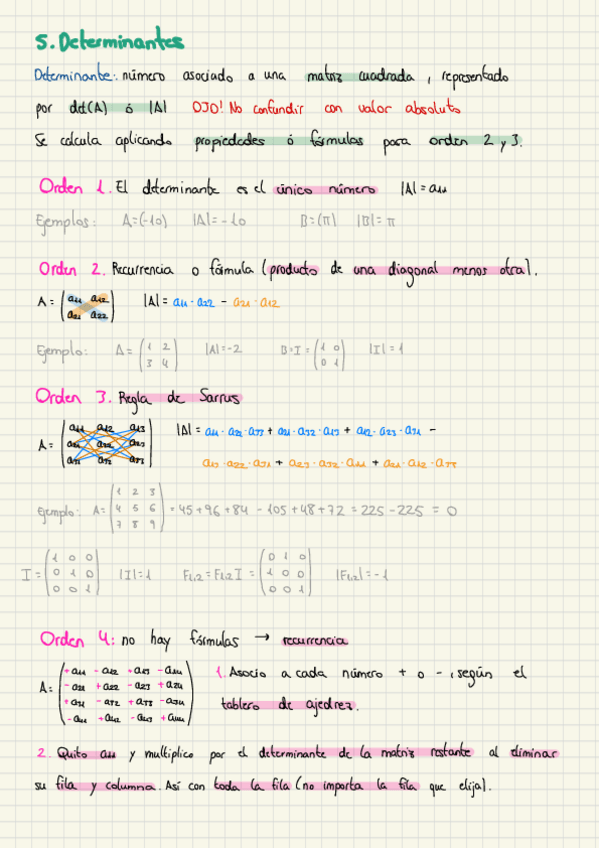 5. Determinantes
Determinante: número asociado a una matriz cuadrada, representado
por det(A) ó |A| OJO! No confundir con valor absoluto
Se calcula aplicando propiedades ó fórmulas para orden 2 y 3.
Orden 1. El determinante es el único número |A| = a₁₁
Ejemplos: A=(-10) |A|= -10 B=(π) |B|= π
Orden 2. Recurrencia o fórmula (producto de una diagonal menos otra).
A = (a₁₁ a₁₂
a₂₁ a₂₂) |A| = a₁₁·a₂₂ - a₂₁·a₁₂
Ejemplo: A= (1 2
3 4) |A|=-2 B=I= (1 0
0 1) |I|=1
Orden 3. Regla de Sarrus
A = (a₁₁ a₁₂ a₁₃
a₂₁ a₂₂ a₂₃
a₃₁ a₃₂ a₃₃) |A| = a₁₁·a₂₂·a₃₃ + a₂₁·a₃₂·a₁₃ + a₁₂·a₂₃·a₃₁ -
a₁₃·a₂₂·a₃₁ + a₂₃·a₃₂·a₁₁ + a₂₁·a₁₂·a₃₃
Ejemplo: A= (1 2 3
4 5 6
7 8 9) = 45+96+84 - 105+48+72 = 225-225 = 0
I = (1 0 0
0 1 0
0 0 1) |I|=1 F₁,₂ = F₁,₂ I = (0 1 0
1 0 0
0 0 1) |F₁,₂|=-1
Orden 4: no hay fórmulas → recurrencia
A = (+a₁₁ -a₁₂ +a₁₃ -a₁₄
-a₂₁ +a₂₂ -a₂₃ +a₂₄
+a₃₁ -a₃₂ +a₃₃ -a₃₄
-a₄₁ +a₄₂ -a₄₃ +a₄₄) 1. Asocio a cada número + o -, según el
tablero de ajedrez.
2. Quito a₁₁ y multiplico por el determinante de la matriz restante al eliminar
su fila y columna. Así con toda la fila (no importa la fila que elija).